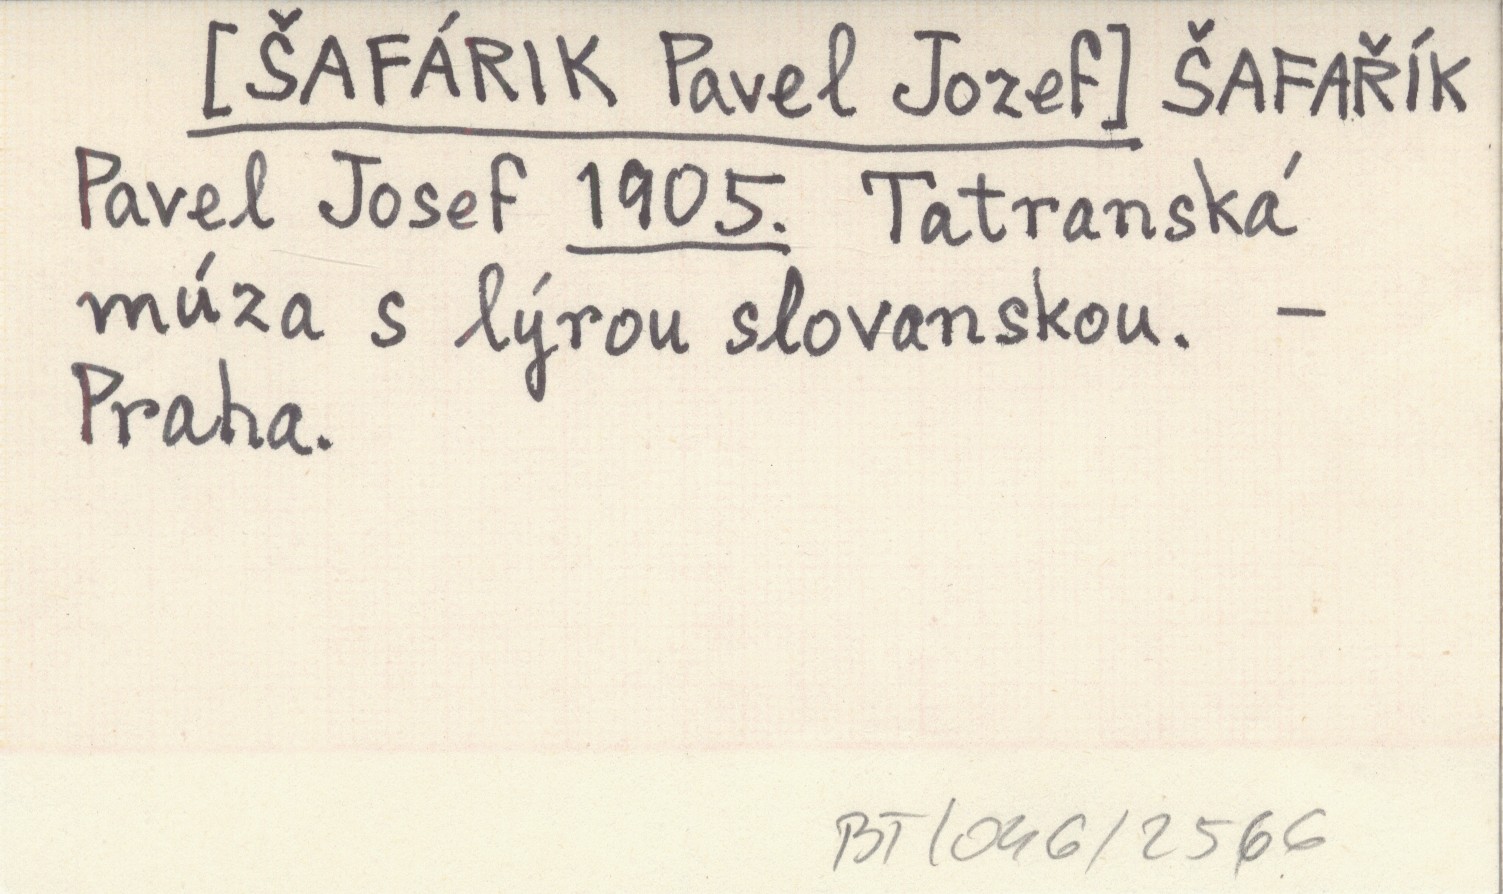 [ŠAFÁRIK Pavel Jozef] ŠAFAŘÍK
Pavel Josef 1905. Tatranská
múza s lýrou slovanskou. –
Praha.
BT/046/2566